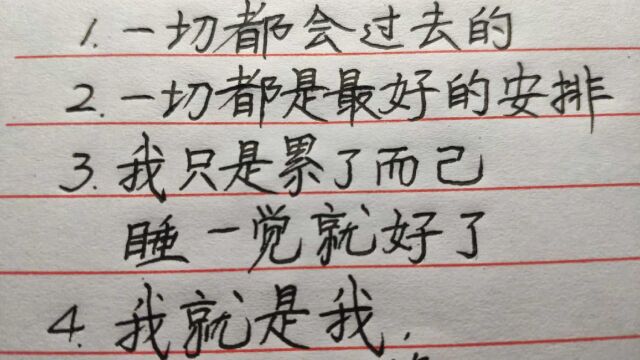 1. 一切都会过去的
2. 一切都是最好的安排
3. 我只是累了而己
睡一觉就好了
4. 我就是我,